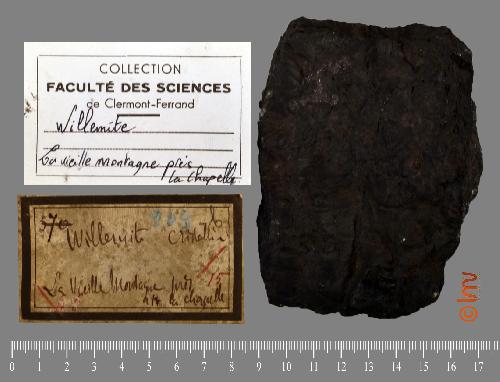 COLLECTION
FACULTÉ DES SCIENCES
de Clermont-Ferrand
Willemite
La vieille montagne près
La Chapelle
Willemit
La Vieille Montagne près
la chapelle
© lmv
0 1 2 3 4 5 6 7 8 9 10 11 12 13 14 15 16 17